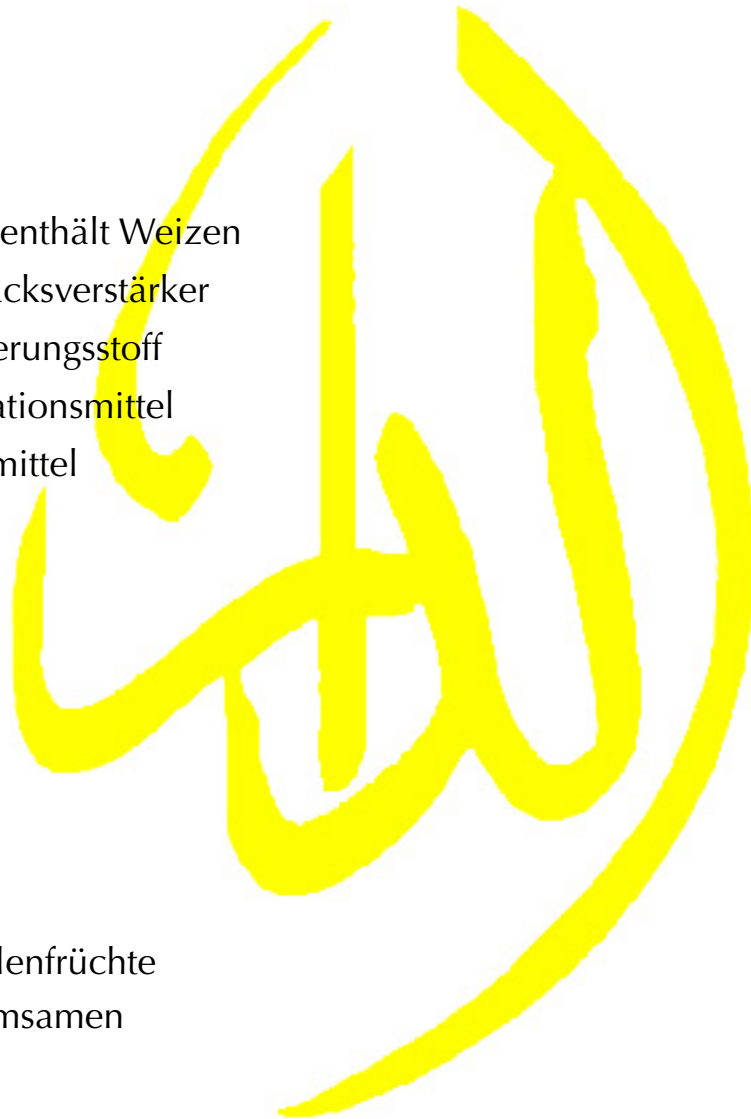 enthält Weizen
cksverstärker
erungsstoff
ationsmittel
mittel
lenfrüchte
msamen